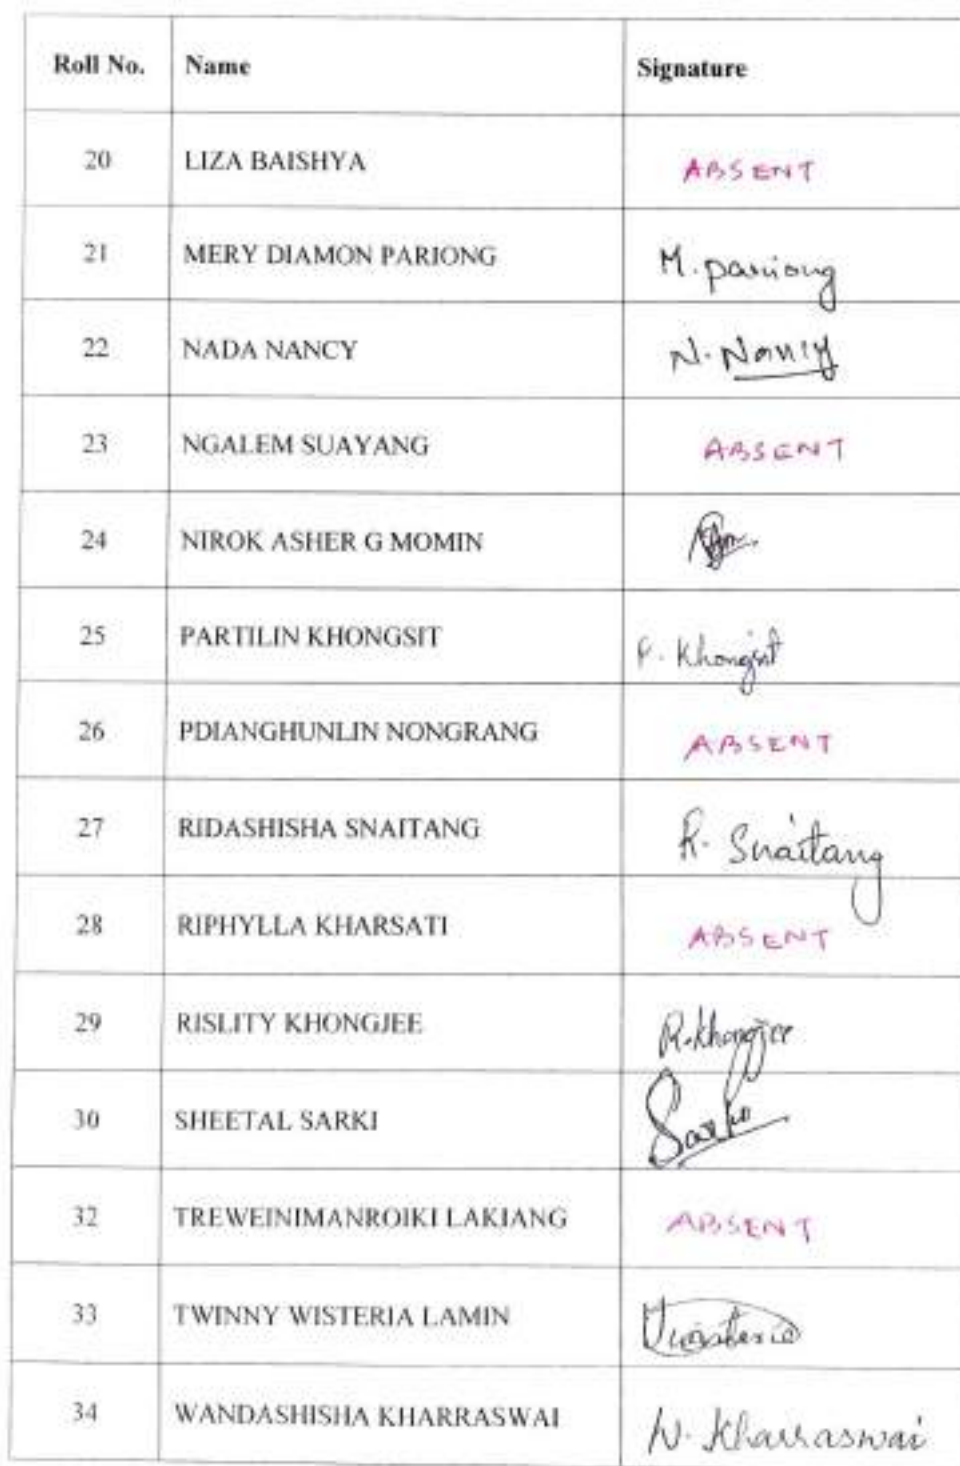 Roll No. Name Signature
20 LIZA BAISHYA ABSENT
21 MERY DIAMON PARIONG M. pariong
22 NADA NANCY N. Nancy
23 NGALEM SUAYANG ABSENT
24 NIROK ASHER G MOMIN
25 PARTILIN KHONGSIT P. Khongsit
26 PDIANGHUNLIN NONGRANG ABSENT
27 RIDASHISHA SNAITANG R. Snaitang
28 RIPHYLLA KHARSATI ABSENT
29 RISLITY KHONGJEE R. Khongjee
30 SHEETAL SARKI Sarki
32 TREWEINIMANROIKI LAKIANG ABSENT
33 TWINNY WISTERIA LAMIN
34 WANDASHISHA KHARRASWAI W. Kharraswai